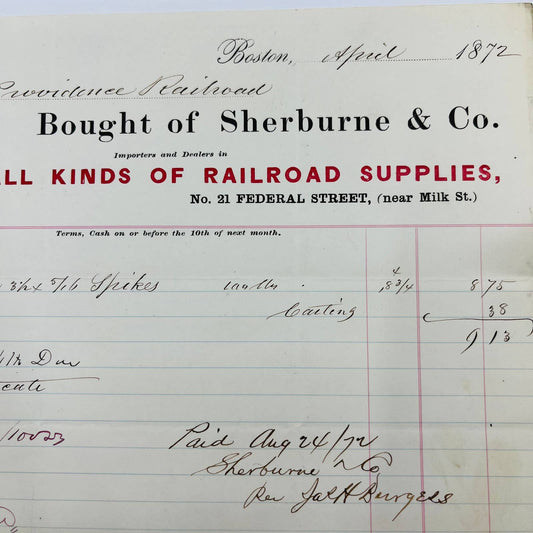 Boston, April 1872
Providence Railroad
Bought of Sherburne & Co.
Importers and Dealers in
ALL KINDS OF RAILROAD SUPPLIES,
No. 21 FEDERAL STREET, (near Milk St.)
Terms, Cash on or before the 10th of next month.
3½ x 5/16 Spikes 100 lbs ,8 3/4 8 75
Carting 38
9 13
Due
Paid Aug 24/72
Sherburne & Co
Per Jas H Burgess